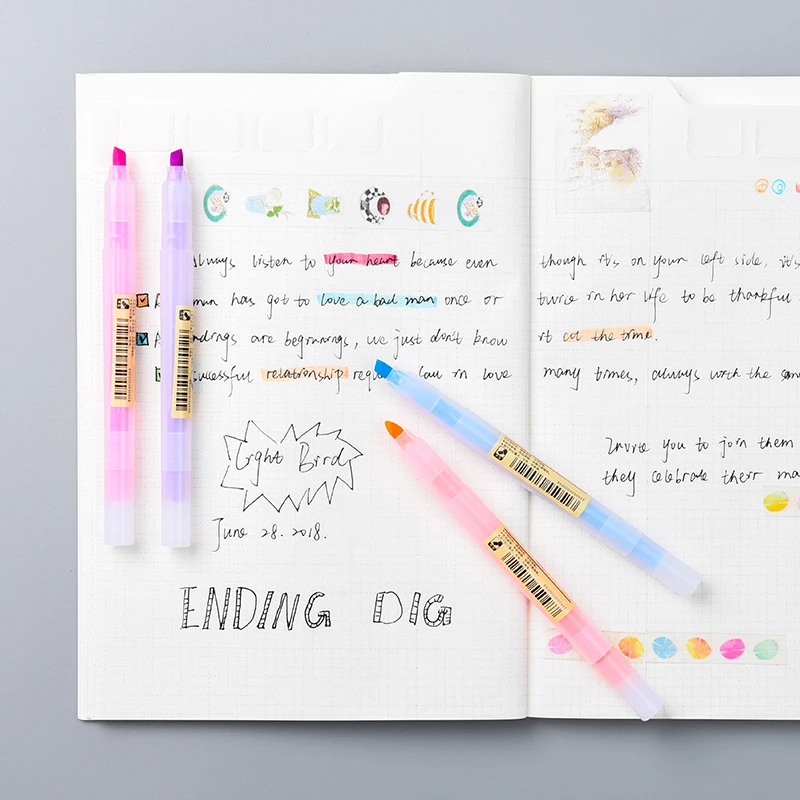 Always listen to your heart because even
though it's on your left side, it's
man has got to love a bad man once or
twice in her life to be thankful
endings are beginnings, we just don't know
it at the time.
successful relationship requ fall in love
many times, always worth the same
Light Bird
June 28. 2018.
Invite you to join them
they celebrate their ma
ENDING DIG